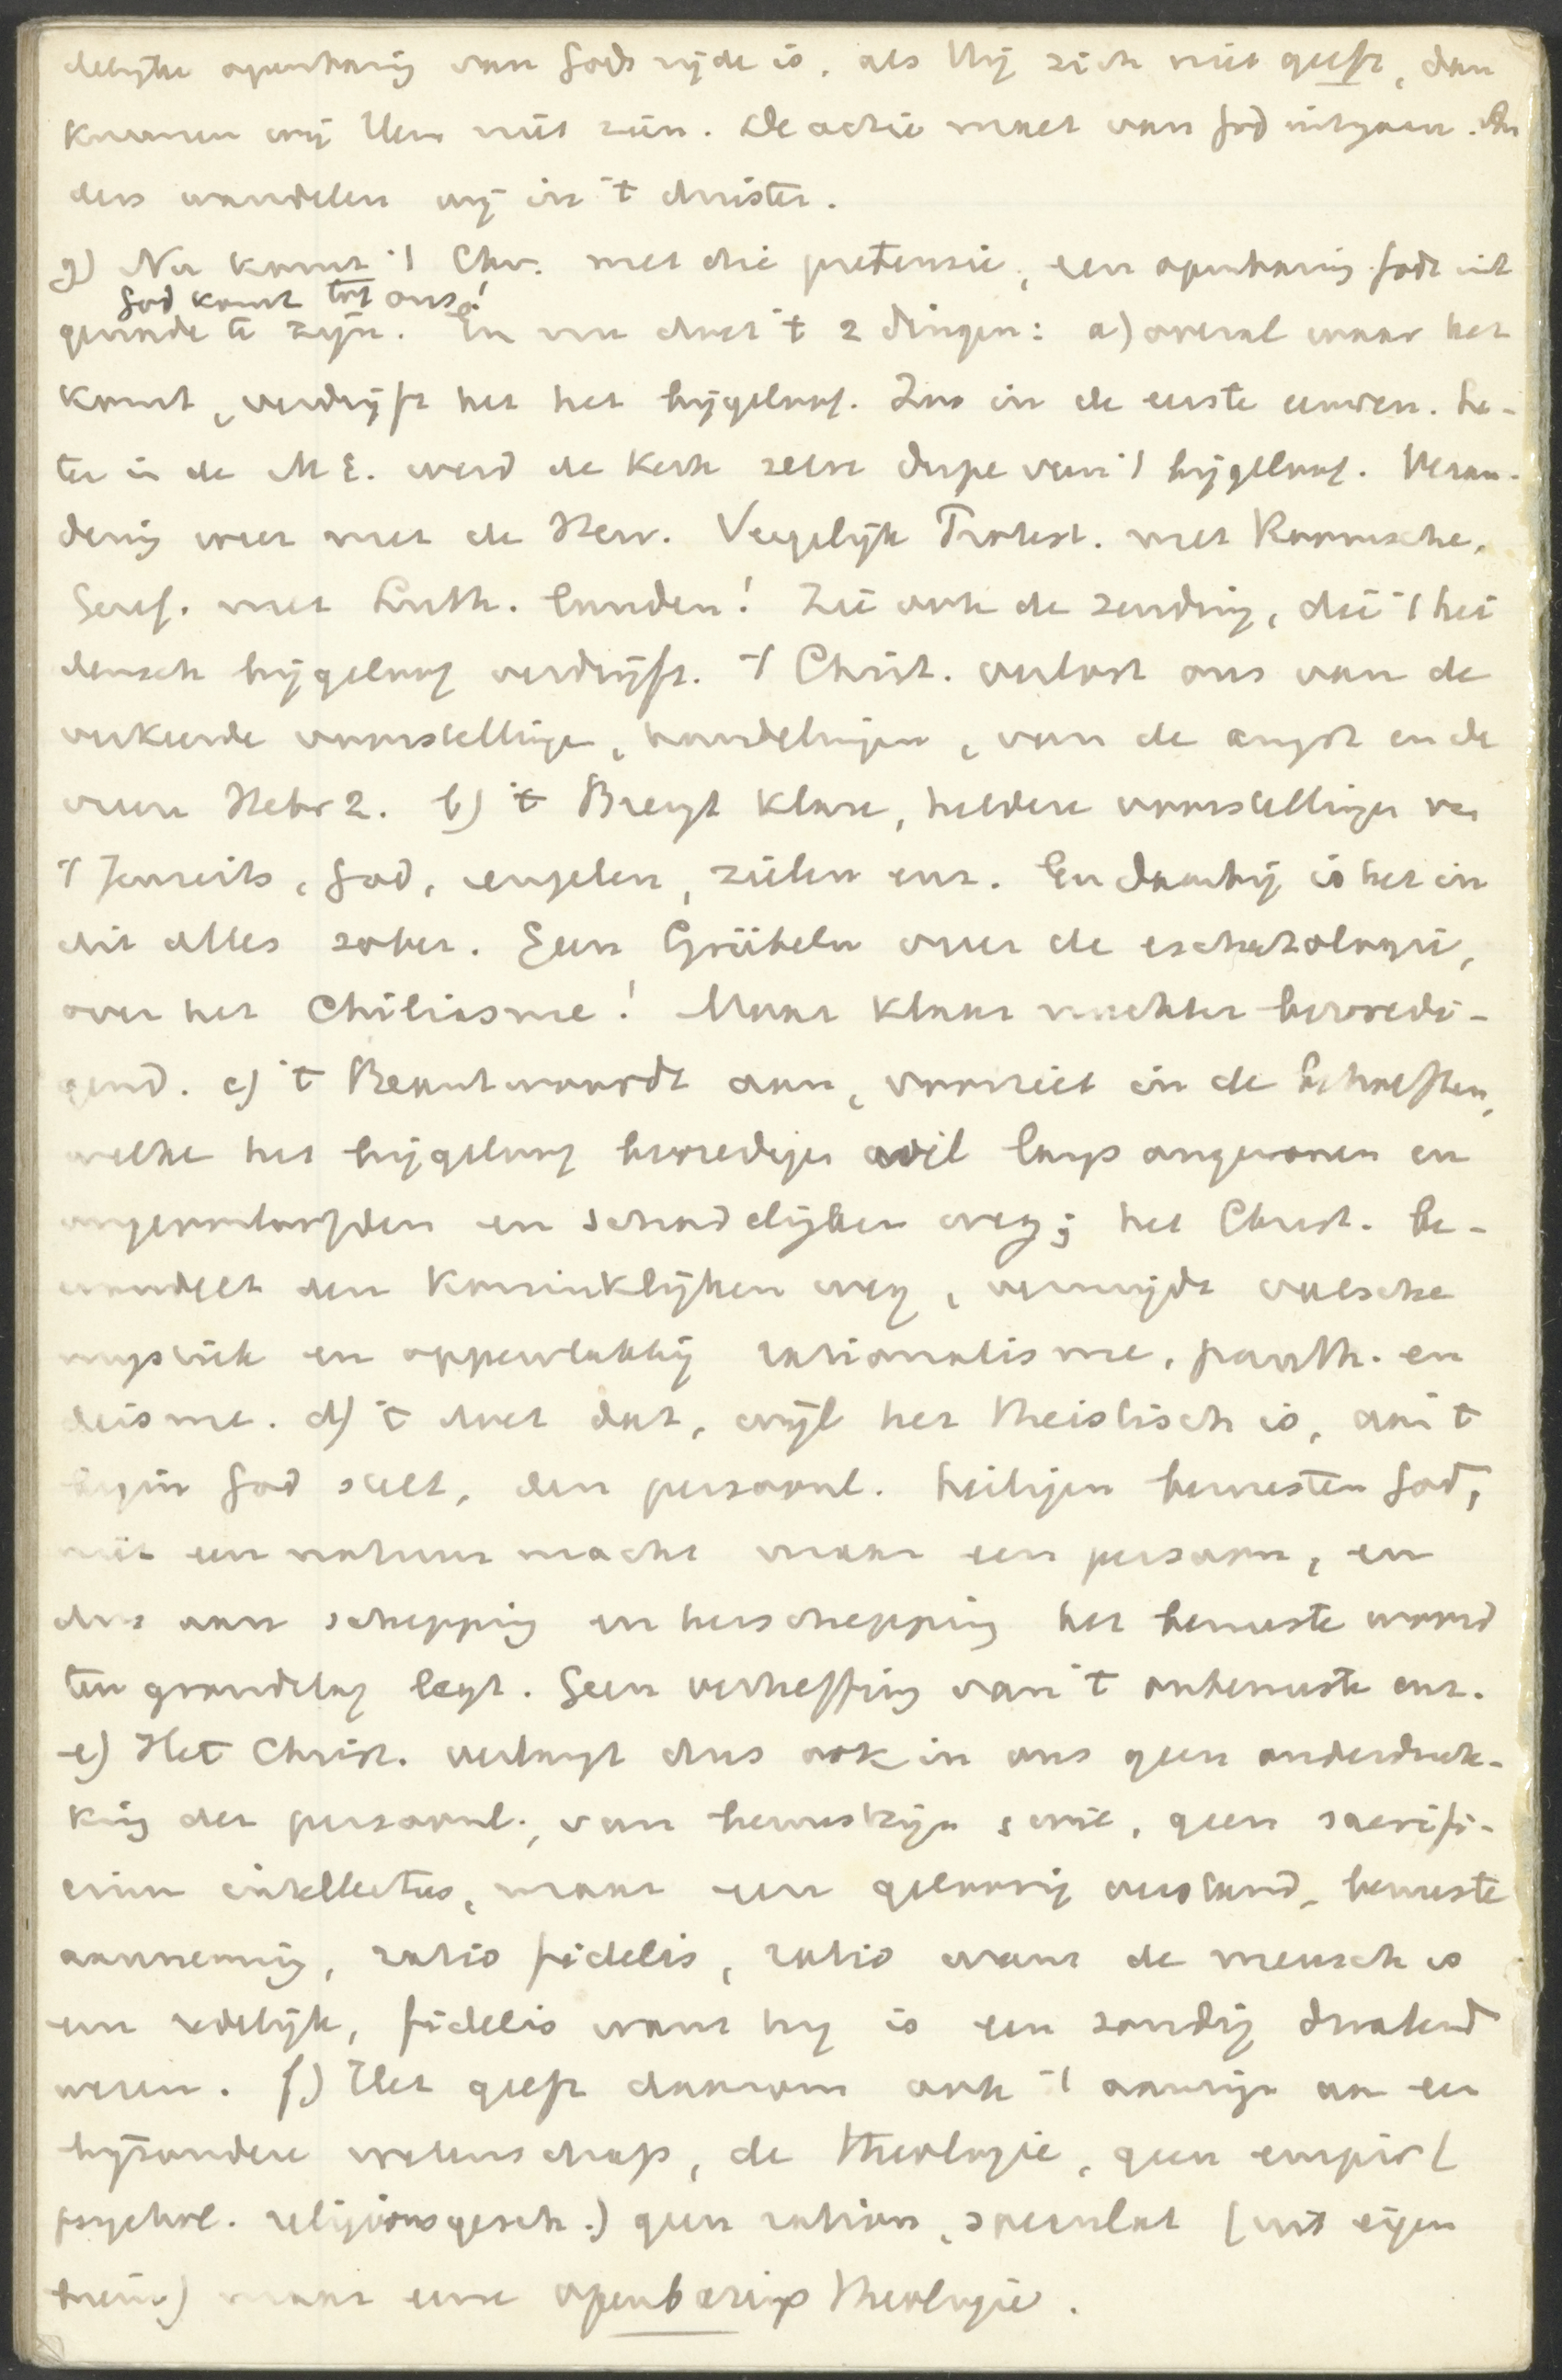 delijke openbaring van Gods zijde is. als Hij zich niet geeft, dan
kunnen wij Hem niet zien. De actie moet van God uitgaan. An
ders wandelen wij in 't duister.
g) Nu komt 't Chr. met die pretensie, een openbaring Gods uit
God komt tot ons!
genade te zijn. En nu doet 't 2 dingen: a) overal waar het
komt, verdrijft het het bijgeloof. Zoo in de eerste eeuwen. La-
ter in de M E. werd de Kerk zelve dupe van 't bijgeloof. Veran-
dering weer met de Herv. Vergelijk Protest. met Roomsche,
Geref. met Luth. landen! Zie ook de zending, die 't hei
densch bijgeloof verdrijft. 't Christ. verlost ons van de
verkeerde voorstellingen, handelingen, van de angst en de
vrees Hebr 2. b) 't Brengt klare, heldere voorstellingen van
't Jenseits, God, engelen, zielen enz. En daarbij is het in
dit alles sober. Geen Grübeln over de eschatologie,
over het Chiliasme! Maar klaar nuchter bevredi-
gend. c) 't Beantwoordt aan, voorziet in de behoeften,
welke het bijgeloof bevredigen wil langs ongewonen en
ongeoorloofden en schandelijken weg; het Christ. be-
wandelt den Koninklijken weg, vermijdt valsche
mystiek en oppervlakkig rationalisme, panth. en
deisme. d) 't doet dat, wijl het theistisch is, aan 't
begin God stelt, den persoonl. heiligen bewusten God,
niet een natuurmacht maar een persoon, en
dus aan schepping en herschepping het bewuste woord
ten grondslag legt. Geen verheffing van 't onbewuste enz.
e) Het Christ. verlangt dus ook in ons geen onderdruk-
king der persoonl., van bewustzijn, geen sacrifi-
cium intellectus, maar een geloovig verstand, bewuste
aanneming, ratio fidelis, ratio want de mensch is
een redelijk, fidelis want hij is een zondig dwalend
wezen. f) Het geeft daarom ook 't aanzijn aan een
bijzondere wetenschap, de theologie, geen empir (
psychol. religionsgesch.) geen ration, speculat (uit eigen
brein) maar eene openbarings theologie.